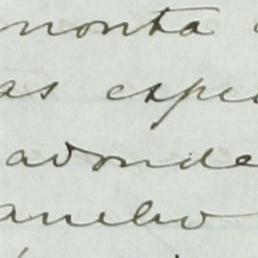 monta
as espe
adonde
ancho